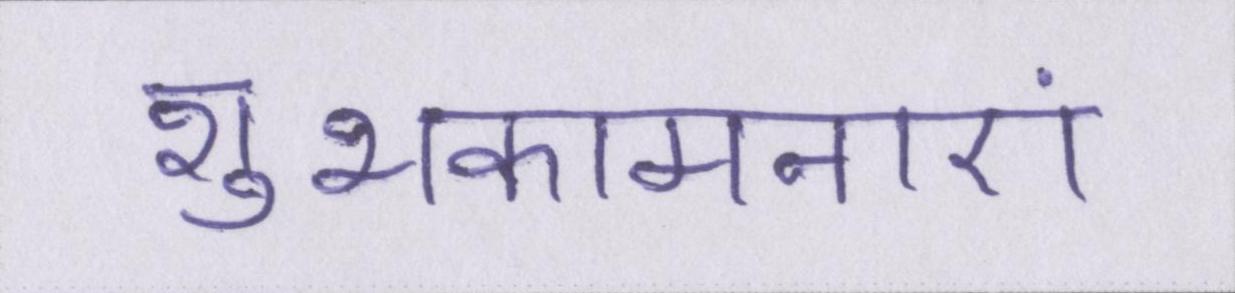 शुभकामनाएं